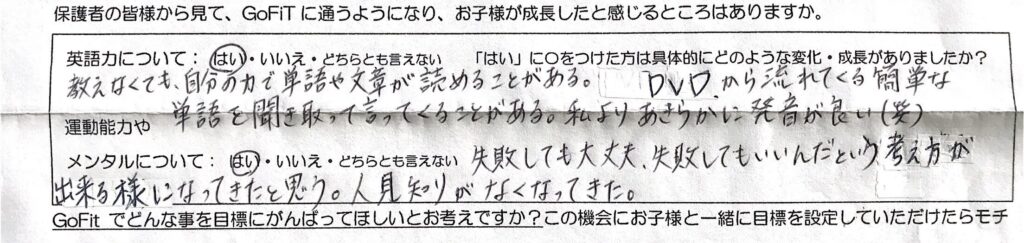 保護者の皆様から見て、GoFiT に通うようになり、お子様が成長したと感じるところはありますか。
英語力について：はい・いいえ・どちらとも言えない　「はい」に○をつけた方は具体的にどのような変化・成長がありましたか？
教えなくても、自分の力で単語や文章が読めることがある。DVDから流れてくる簡単な
単語を聞き取って言ってくることがある。私よりあきらかに発音が良い(笑)
運動能力や
メンタルについて：はい・いいえ・どちらとも言えない　失敗しても大丈夫、失敗してもいいんだという考え方が
出来る様になってきたと思う。人見知りがなくなってきた。
GoFit でどんな事を目標にがんばってほしいとお考えですか？この機会にお子様と一緒に目標を設定していただけたらモチ